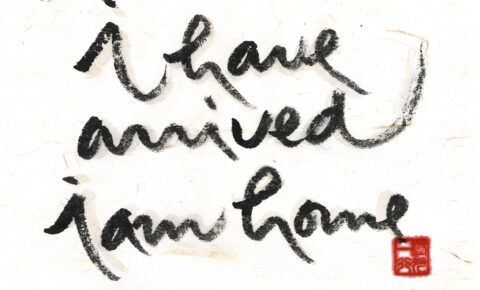 i have
arrived
i am home